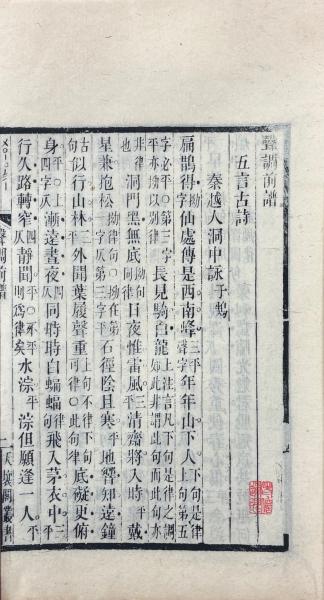 聲調前譜
五言古詩
秦越人洞中詠于鵠
扁鵲得拗字仙處傳是西南峰三平聲字年年山下人下句是律上句第五
字必平○第三字平亦拗以別律長見騎白龍上注言凡下句是律之調如此非謂此而此句亦
非律洞門黑無底日夜惟雷風平清齋將入時平戴
星兼抱松拗律句○拗在第三字第三字平石徑陰且寒平地響知遠鐘
古句似行山林三平外聞葉履聲重上句不律下句可律○此句律底礙更俯
身四平○上四字仄漸遠晝夜同四仄時時白蝙蝠律句飛入茅衣中三平
行久路轉窄四仄靜聞平則為律矣水淙淙但願逢一人平
聲調前譜
一天壤閣叢書